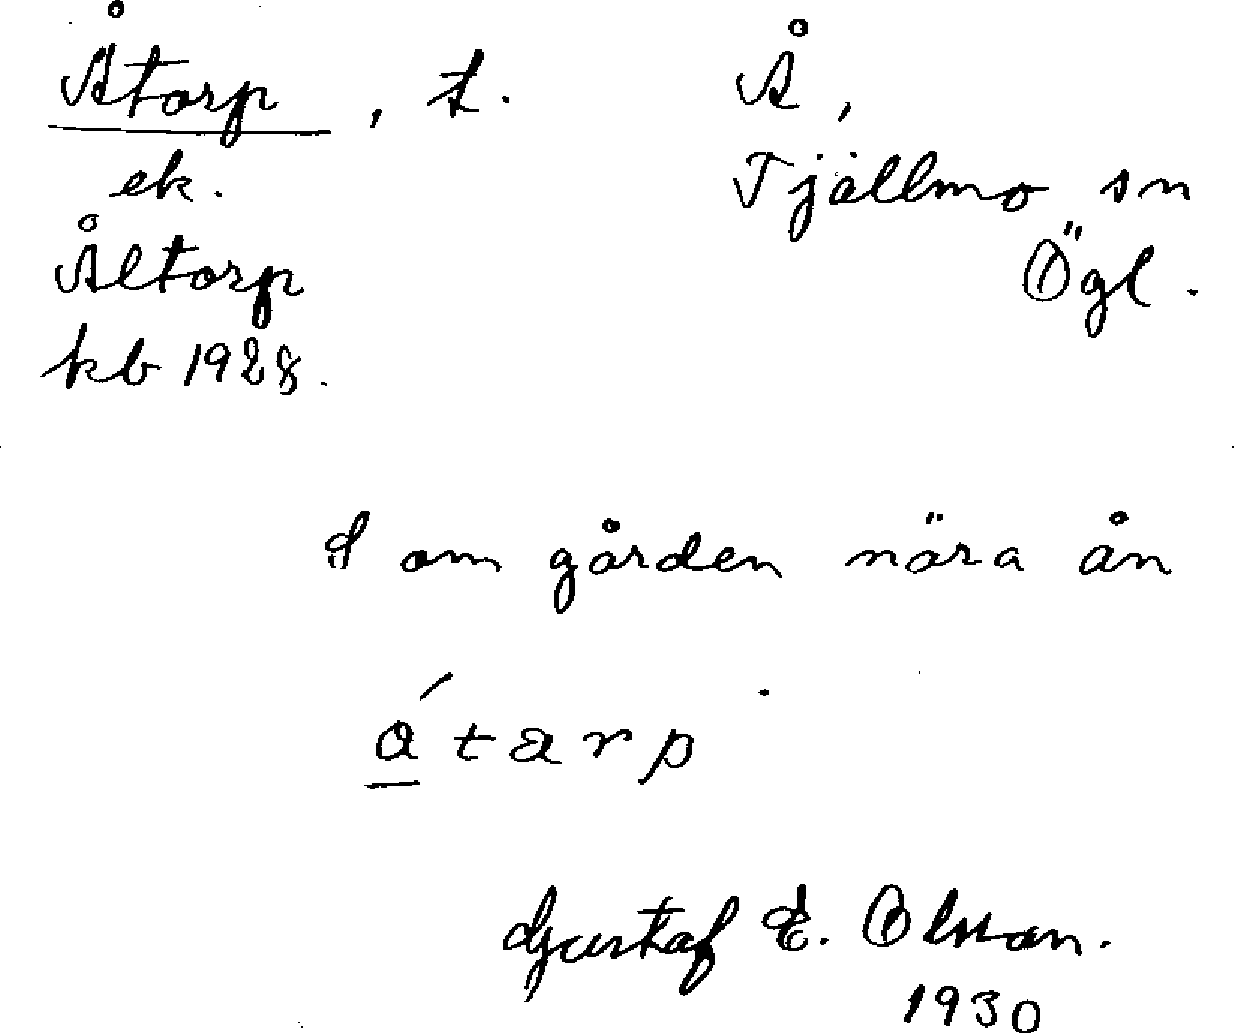 Åtorp, t.
ek.
Åltorp
kb 1928.
Å,
Tjällmo sn
Ögl.
S om gården nära ån
á t a r p
Gustaf E. Olsson.
1930